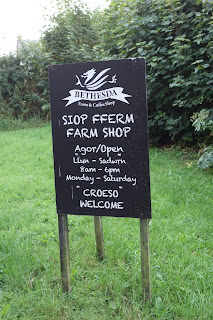 BETHESDA
Farm & Coffee Shop
SIOP FFERM
FARM SHOP
Agor/Open
"Llun - Sadwrn"
8am - 6pm
Monday - Saturday
"CROESO"
WELCOME